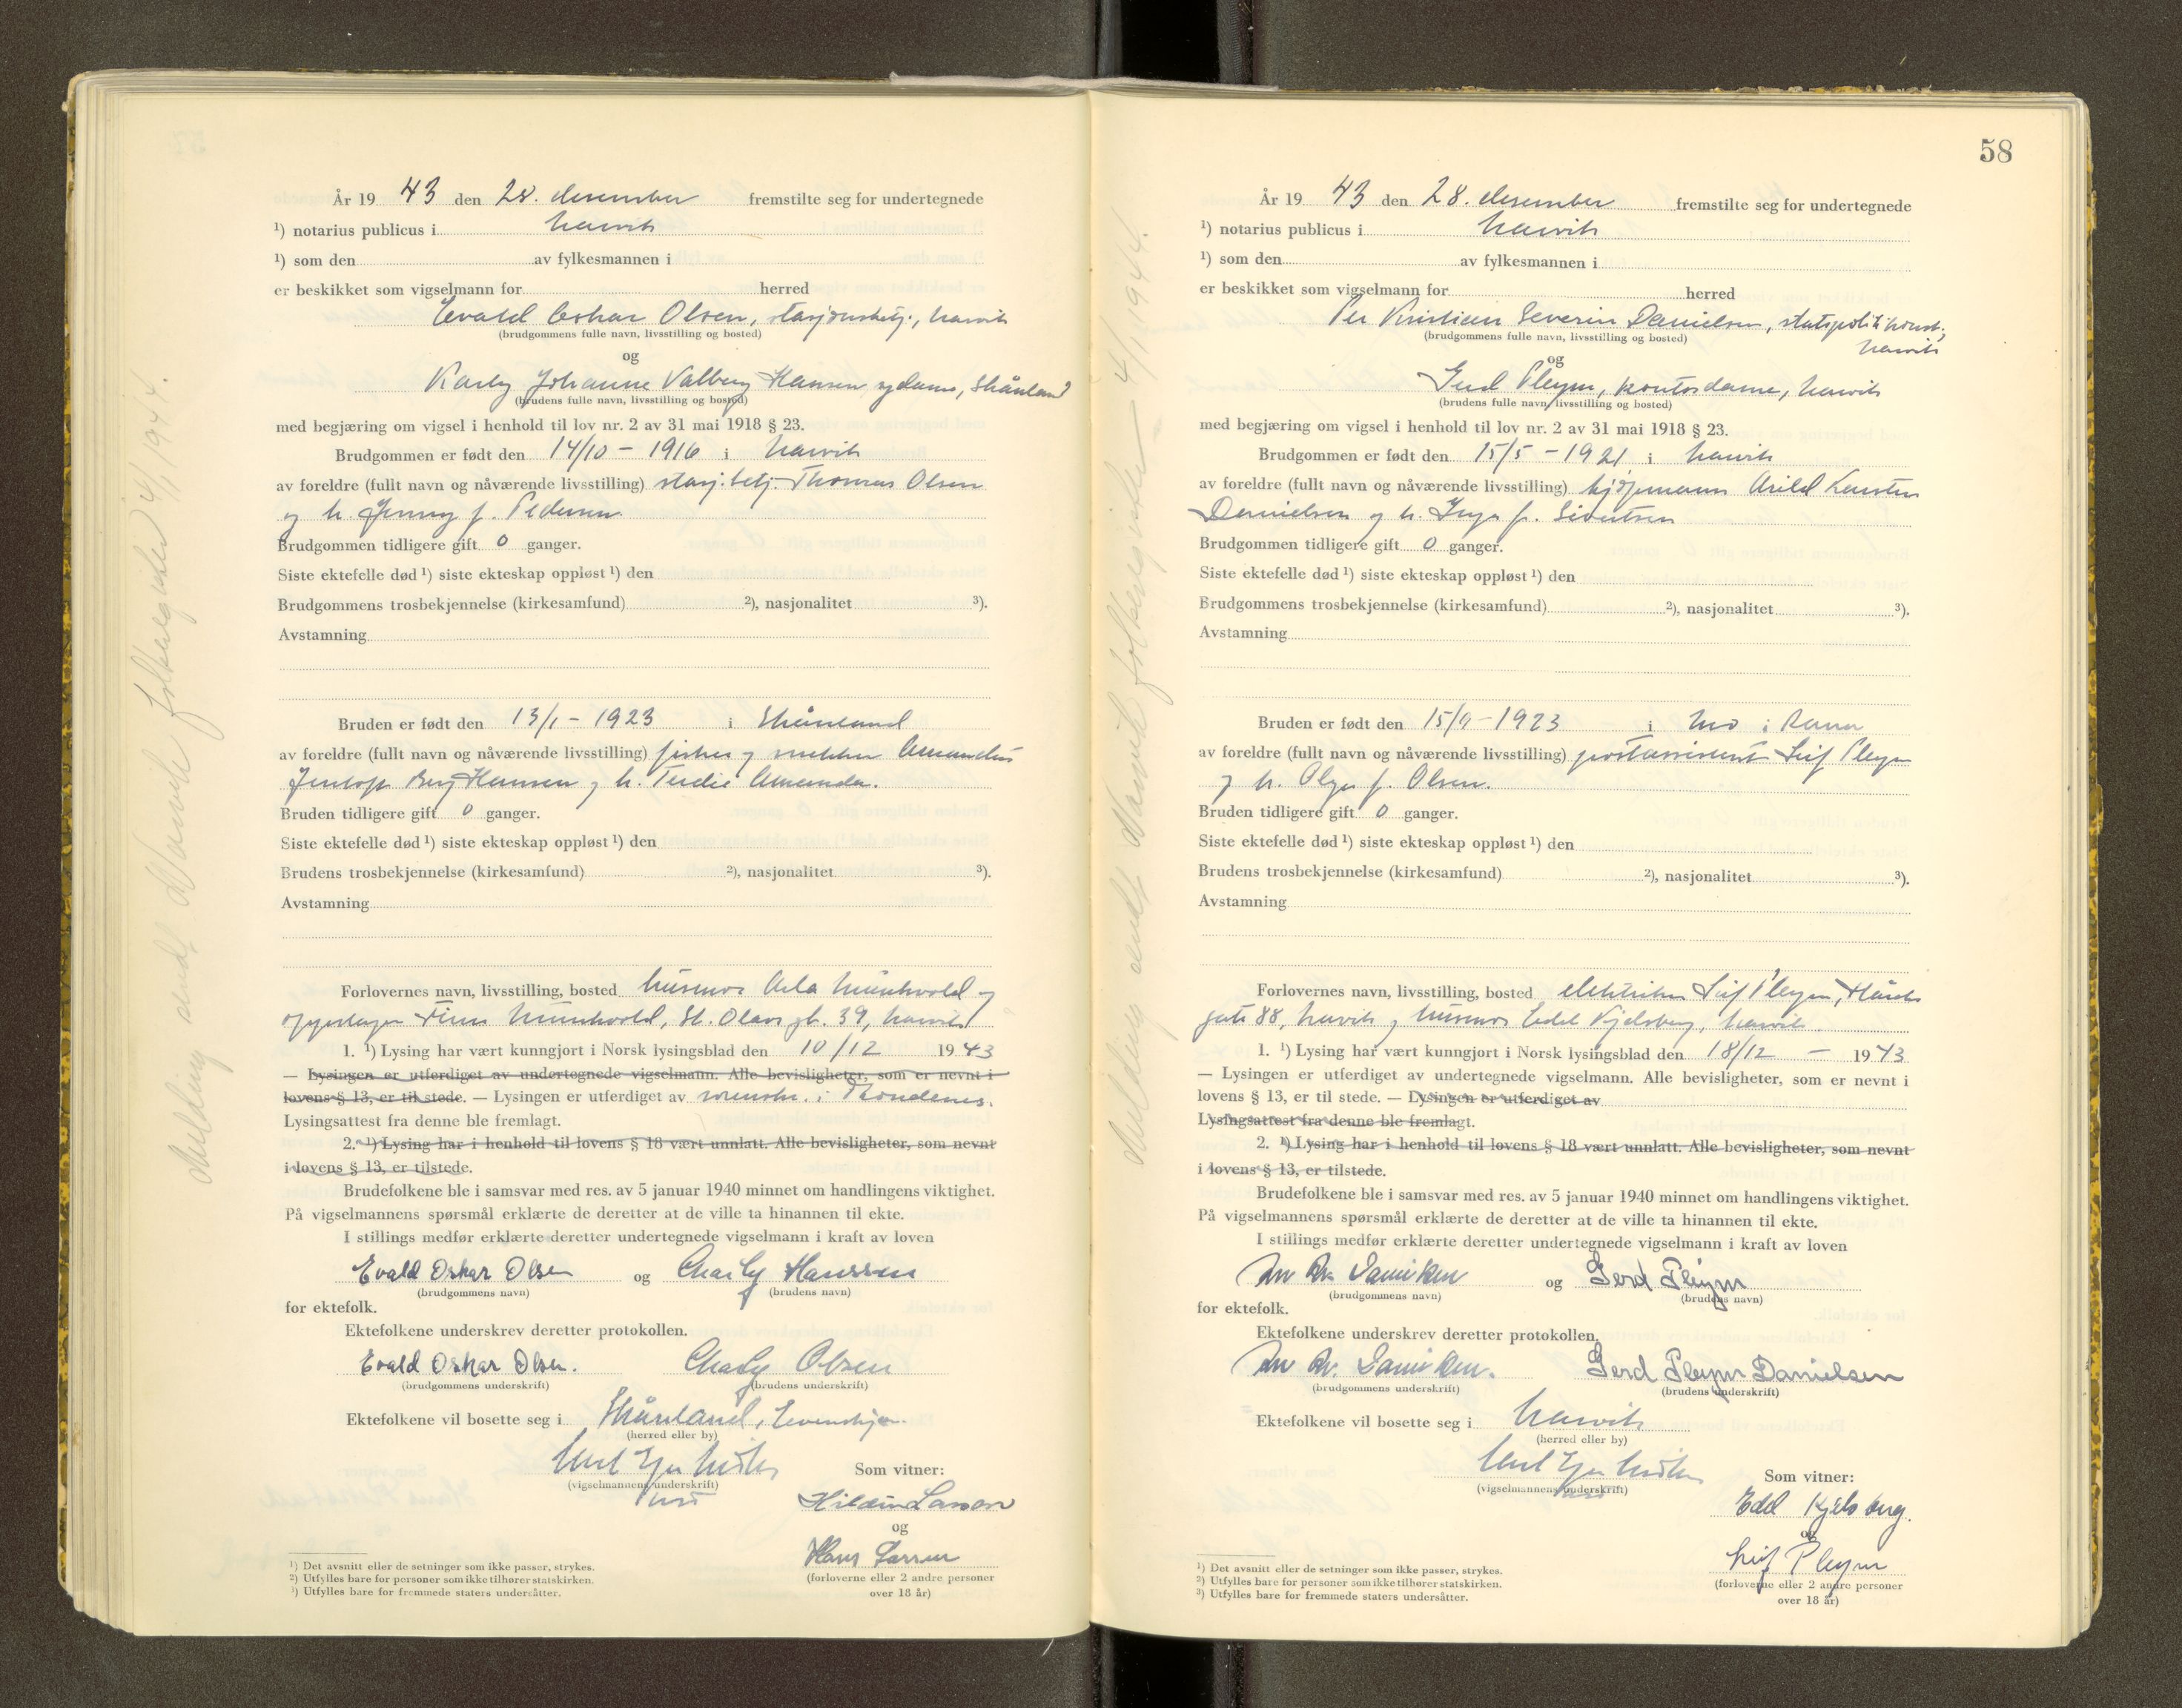 År 19 43 den 28. desember fremstilte seg for undertegnede
¹) notarius publicus i Narvik
¹) som den av fylkesmannen i
er beskikket som vigselmann for herred
Evald Oskar Olsen, stasjonsbetj., Narvik
(brudgommens fulle navn, livsstilling og bosted)
og
Karly Johanne Valborg Hansen sydame, Skånland
(brudens fulle navn, livsstilling og bosted)
med begjæring om vigsel i henhold til lov nr. 2 av 31 mai 1918 § 23.
Brudgommen er født den 14/10 - 1916 i Narvik
av foreldre (fullt navn og nåværende livsstilling) stasj. betj. Thomas Olsen
og h. Jenny f. Pedersen
Brudgommen tidligere gift 0 ganger.
Siste ektefelle død ¹) siste ekteskap oppløst ¹) den
Brudgommens trosbekjennelse (kirkesamfund) ²), nasjonalitet ³).
Avstamning
Bruden er født den 13/1 - 1923 i Skånland
av foreldre (fullt navn og nåværende livsstilling) fisker og snekker Amandus
Jentoft Berg Hansen og h. Amanda.
Bruden tidligere gift 0 ganger.
Siste ektefelle død ¹) siste ekteskap oppløst ¹) den
Brudens trosbekjennelse (kirkesamfund) ²), nasjonalitet ³).
Avstamning
Forlovernes navn, livsstilling, bosted husmor og
Finn St. Olavs gt. 39, Narvik
1. ¹) Lysing har vært kunngjort i Norsk lysingsblad den 10/12 19 43
— Lysingen er utferdiget av undertegnede vigselmann. Alle bevisligheter, som er nevnt i
lovens § 13, er til stede. — Lysingen er utferdiget av sorenskr. i Trondenes.
Lysingsattest fra denne ble fremlagt.
2. ¹) Lysing har i henhold til lovens § 18 vært unnlatt. Alle bevisligheter, som nevnt
i lovens § 13, er tilstede.
Brudefolkene ble i samsvar med res. av 5 januar 1940 minnet om handlingens viktighet.
På vigselmannens spørsmål erklærte de deretter at de ville ta hinannen til ekte.
I stillings medfør erklærte deretter undertegnede vigselmann i kraft av loven
Evald Oskar Olsen og Charly Hanssen
(brudgommens navn) (brudens navn)
for ektefolk.
Ektefolkene underskrev deretter protokollen.
Evald Oskar Olsen. Charly Olsen
(brudgommens underskrift) (brudens underskrift)
Ektefolkene vil bosette seg i Skånland, Evenskjer.
(herred eller by)
(vigselmannens underskrift)
Som vitner:
Larsen
og
Hans Larsen
(forloverne eller 2 andre personer
over 18 år)
¹) Det avsnitt eller de setninger som ikke passer, strykes.
²) Utfylles bare for personer som ikke tilhører statskirken.
³) Utfylles bare for fremmede staters undersåtter.
Melding sendt Narvik folkeregister 4/1 1944.
58
År 19 43 den 28. desember fremstilte seg for undertegnede
¹) notarius publicus i Narvik
¹) som den av fylkesmannen i
er beskikket som vigselmann for herred
Per Kristian Severin Danielsen, statspolitikonst.,
Narvik
(brudgommens fulle navn, livsstilling og bosted)
og
Gerd Pleym, kontordame, Narvik
(brudens fulle navn, livsstilling og bosted)
med begjæring om vigsel i henhold til lov nr. 2 av 31 mai 1918 § 23.
Brudgommen er født den 15/5 - 1921 i Narvik
av foreldre (fullt navn og nåværende livsstilling) kjøpmann Arild Karsten
Danielsen og h. Inga f. Sivertsen
Brudgommen tidligere gift 0 ganger.
Siste ektefelle død ¹) siste ekteskap oppløst ¹) den
Brudgommens trosbekjennelse (kirkesamfund) ²), nasjonalitet ³).
Avstamning
Bruden er født den 15/9 - 1923 i Mo i Rana
av foreldre (fullt navn og nåværende livsstilling) postassistent Leif Pleym
og h. Olga f. Olsen.
Bruden tidligere gift 0 ganger.
Siste ektefelle død ¹) siste ekteskap oppløst ¹) den
Brudens trosbekjennelse (kirkesamfund) ²), nasjonalitet ³).
Avstamning
Forlovernes navn, livsstilling, bosted elektriker Leif Pleym,
gate 88, Narvik og husmor Edel Kjelsberg, Narvik
1. ¹) Lysing har vært kunngjort i Norsk lysingsblad den 18/12 — 19 43
— Lysingen er utferdiget av undertegnede vigselmann. Alle bevisligheter, som er nevnt i
lovens § 13, er til stede. — Lysingen er utferdiget av
Lysingsattest fra denne ble fremlagt.
2. ¹) Lysing har i henhold til lovens § 18 vært unnlatt. Alle bevisligheter, som nevnt
i lovens § 13, er tilstede.
Brudefolkene ble i samsvar med res. av 5 januar 1940 minnet om handlingens viktighet.
På vigselmannens spørsmål erklærte de deretter at de ville ta hinannen til ekte.
I stillings medfør erklærte deretter undertegnede vigselmann i kraft av loven
Per Kr. Danielsen og Gerd Pleym
(brudgommens navn) (brudens navn)
for ektefolk.
Ektefolkene underskrev deretter protokollen.
Per Kr. Danielsen. Gerd Pleym Danielsen
(brudgommens underskrift) (brudens underskrift)
Ektefolkene vil bosette seg i Narvik
(herred eller by)
(vigselmannens underskrift)
Som vitner:
Edel Kjelsberg.
og
Leif Pleym
(forloverne eller 2 andre personer
over 18 år)
¹) Det avsnitt eller de setninger som ikke passer, strykes.
²) Utfylles bare for personer som ikke tilhører statskirken.
³) Utfylles bare for fremmede staters undersåtter.
Melding sendt Narvik folkeregister 4/1 1944.